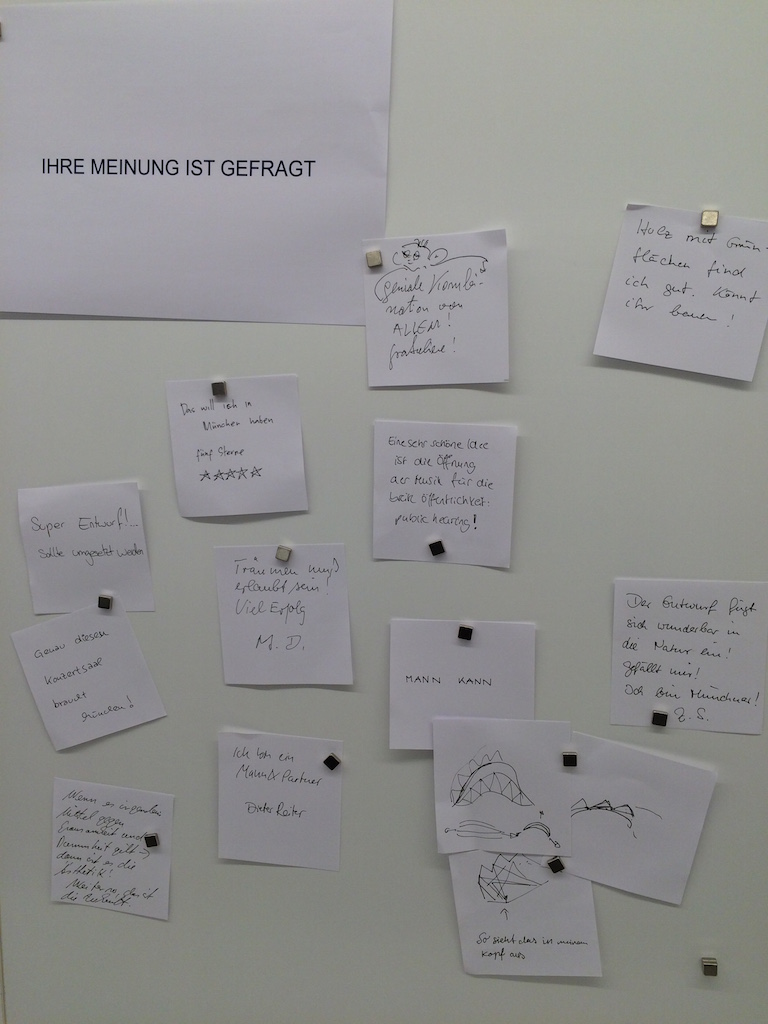 IHRE MEINUNG IST GEFRAGT
Holz mit Grün-
flächen find
ich gut. Könnt
ihr bauen!
geniale Kombi-
nation von
ALLEM!
gratuliere!
Das will ich in
München haben
fünf Sterne
Eine sehr schöne Idee
ist die Öffnung
der Musik für die
breite Öffentlichkeit:
public hearing!
Super Entwurf!...
Sollte umgesetzt werden
Träumen muß
erlaubt sein!
Viel Erfolg
M. D.
Der Entwurf fügt
sich wunderbar in
die Natur ein!
gefällt mir!
Ich bin Münchner!
S.
Genau diesen
Konzertsaal
braucht
München!
MANN KANN
Ich bin ein
Mann & Partner
Dieter Reiter
Wenn es irgendein
Mittel gegen
Grausamkeit und
Dummheit gibt
dann ist es die
Ästhetik!
Weiter so, das ist
die Zukunft.
So sieht das in meinem
Kopf aus